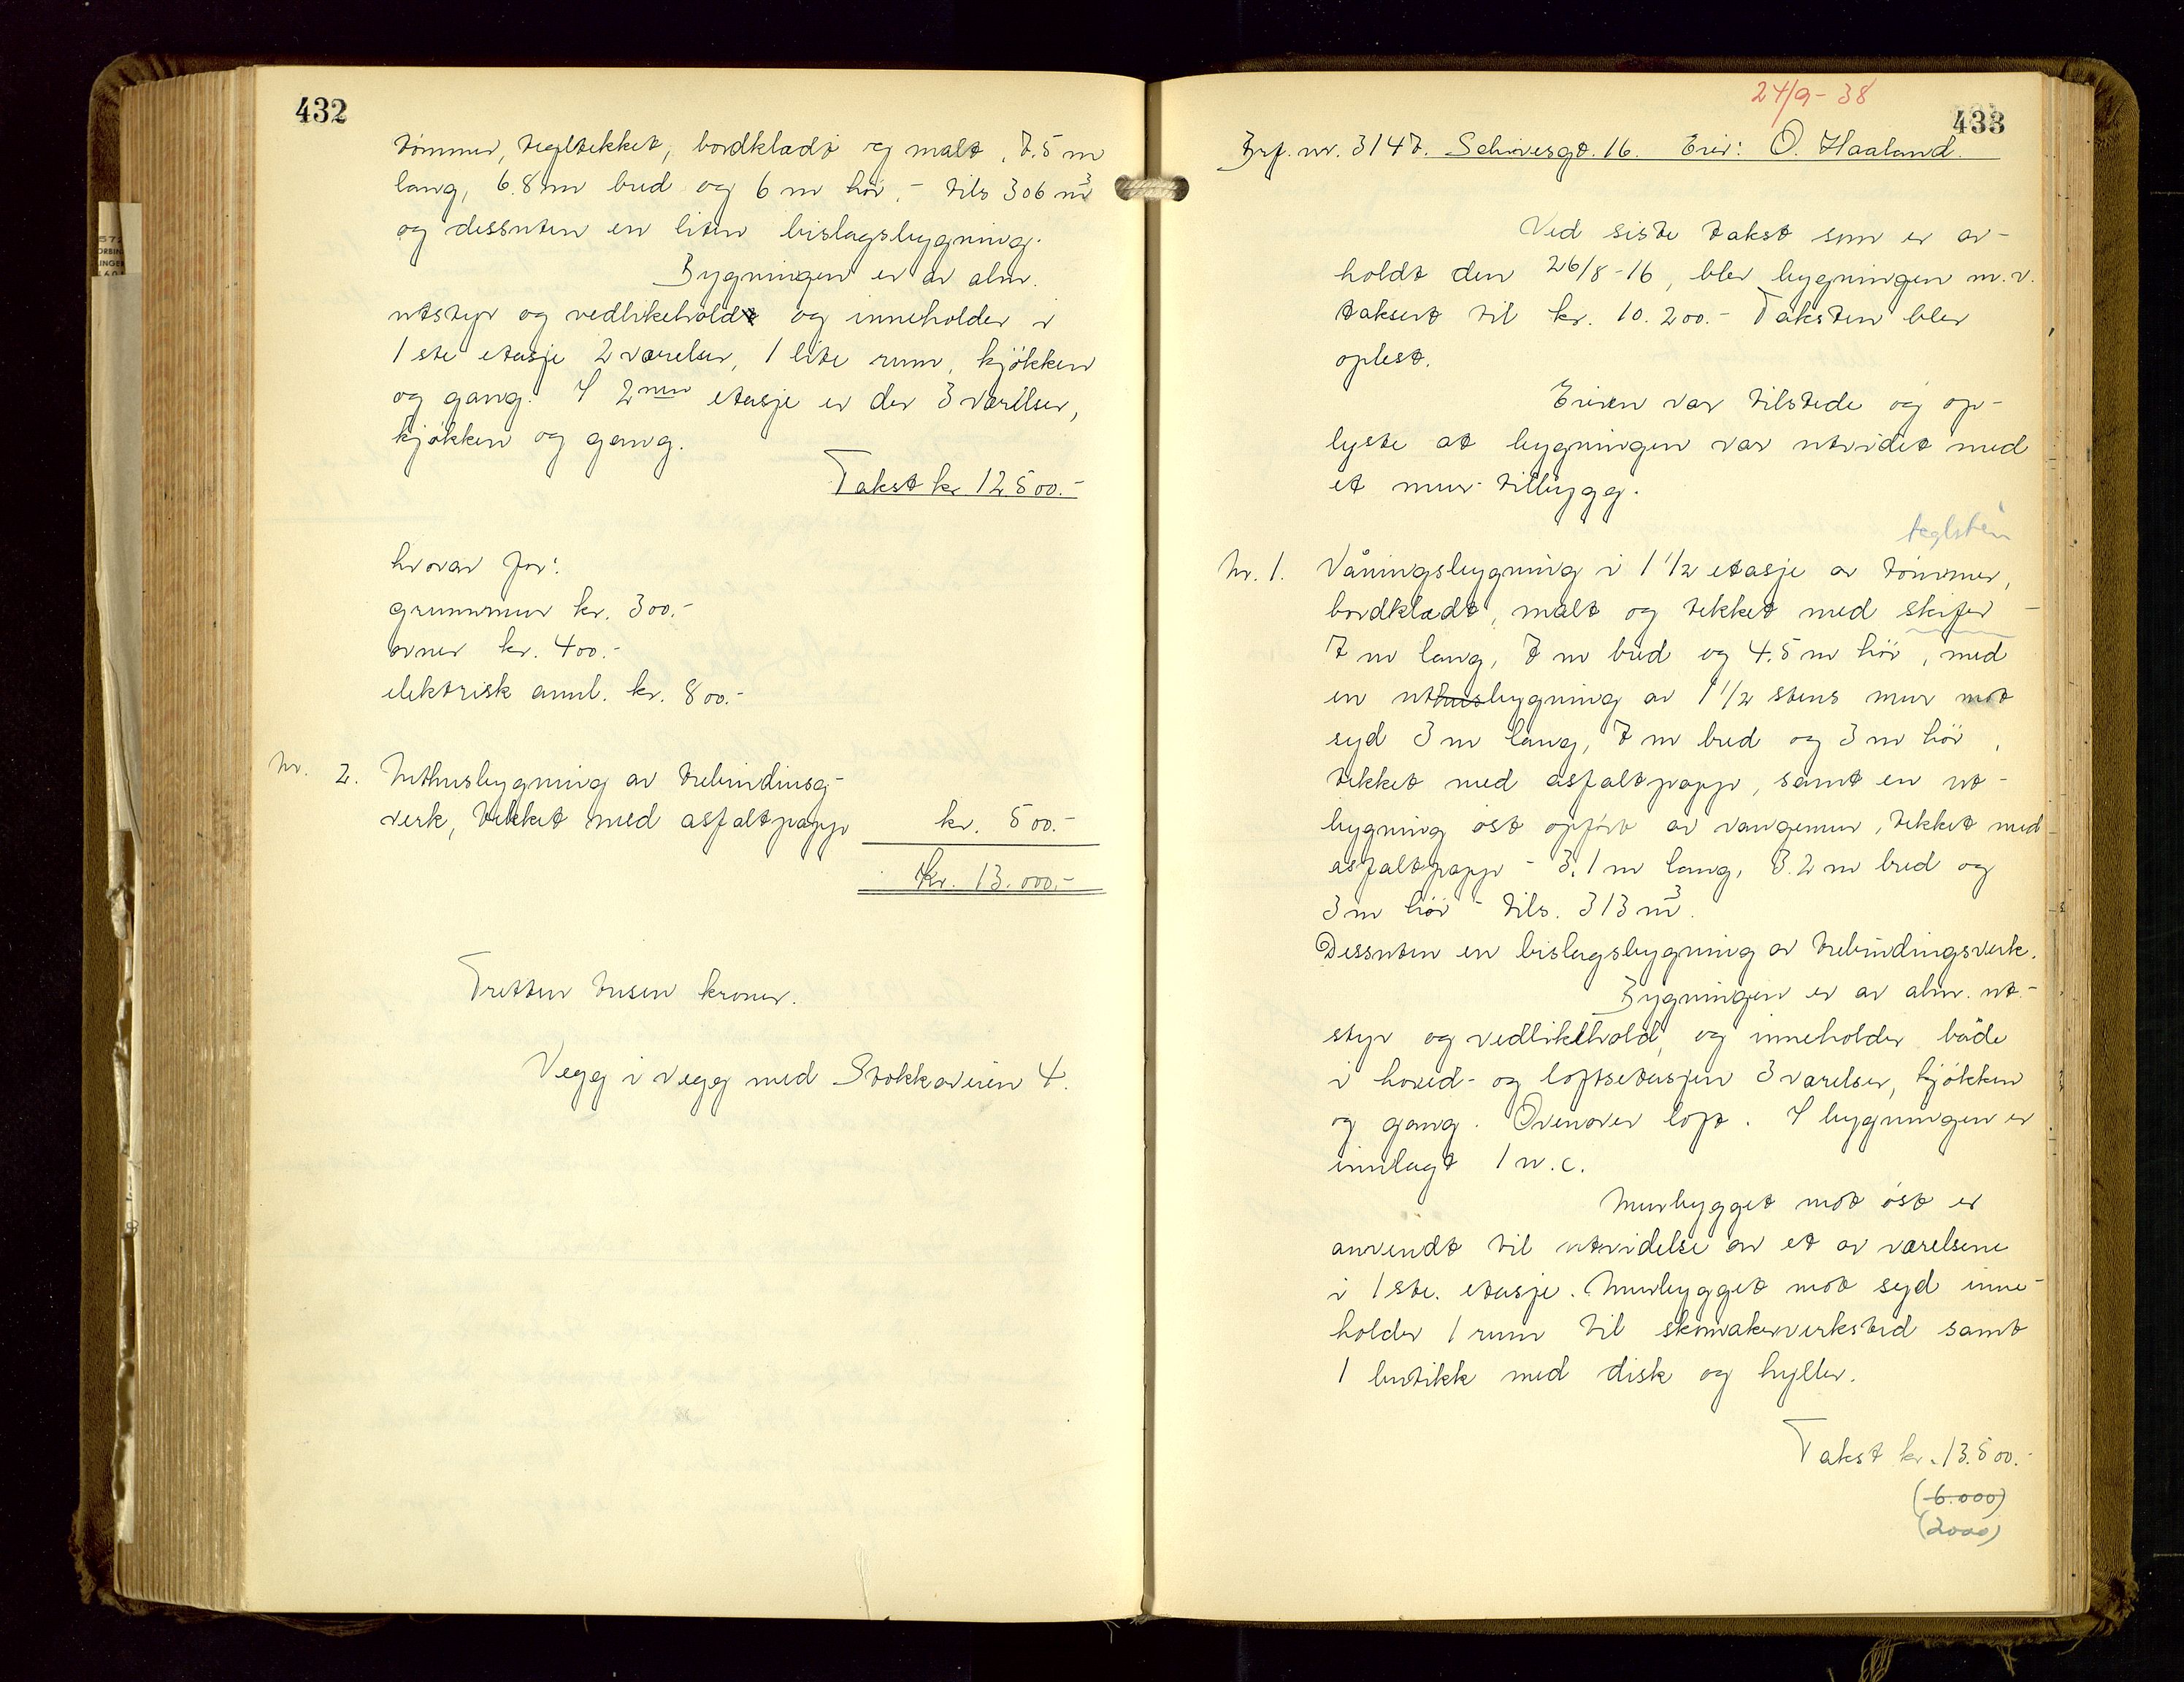 432
tømmer, tegltekket, bordkledt og malt, 7.5 m
lang, 6.8 m bred og 6 m høi, - tils 306 m³
og dessuten en liten bislagsbygning.
Bygningen er av alm.
utstyr og vedlikehold og inneholder i
1ste etasje 2 værelser, 1 lite rum, kjøkken
og gang. I 2nen etasje er der 3 værelser,
kjøkken og gang.
Takst kr 12500.-
hvorav for:
grunnmur kr. 300.-
ovner kr. 400.-
elektrisk annl. kr. 800.-
Nr. 2. Uthusbygning av trebindinsg-
verk, tekket med asfaltpapp kr. 500.-
Kr. 13.000.-
Tretten tusen kroner.
Vegg i vegg med Stokkaveien 4.
24/9-38
433
Brf. nr. 3147. Schivesgt. 16. Eier: O. Haaland.
Ved siste takst som er av-
holdt den 26/8-16, blev bygningen m.v.
taksert til kr. 10.200.- Taksten blev
oplest.
Eieren var tilstede og op-
lyste at bygningen var utvidet med
et mur-tilbygg.
teglsten
Nr. 1. Våningsbygning i 1 1/2 etasje av tømmer,
bordkledt, malt og tekket med skifer -
7 m lang, 7 m bred og 4.5 m høi, med
en uthusbygning av 1 1/2 stens mur mot
syd 3 m lang, 7 m bred og 3 m høi,
tekket med asfaltpapp, samt en ut-
bygning øst opført av vangemur, tekket med
asfaltpapp - 3.1 m lang, 3.2 m bred og
3 m høi - tils. 313 m³.
Dessuten en bislagsbygning av trebindingsverk.
Bygningen er av alm. ut-
styr og vedlikehold, og inneholder både
i hoved- og loftsetasjen 3 værelser, kjøkken
og gang. Ovenover loft. I bygningen er
innlagt 1 w.c.
Murbygget mot øst er
anvendt til utvidelse av et av værelsene
i 1ste. etasje. Murbygget mot syd inne-
holder 1 rum til skomakerverksted samt
1 butikk med disk og hyller.
Takst kr. 13.500.-
(6.000)
(2000)